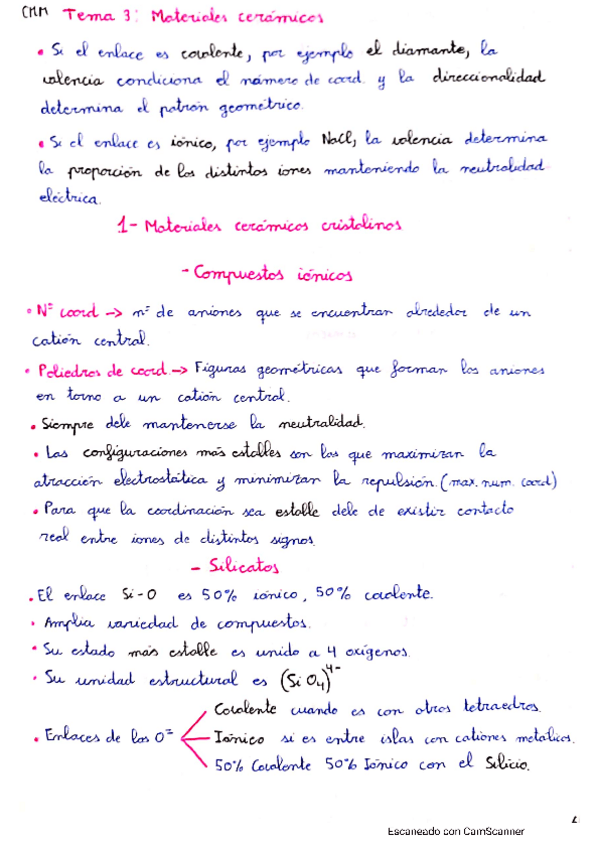 CMM Tema 3: Materiales cerámicos
• Si el enlace es covalente, por ejemplo el diamante, la
valencia condiciona el número de coord. y la direccionalidad
determina el patrón geométrico.
• Si el enlace es iónico, por ejemplo NaCl, la valencia determina
la proporción de los distintos iones manteniendo la neutralidad
eléctrica.
1- Materiales cerámicos cristalinos
- Compuestos iónicos
• Nº coord -> nº de aniones que se encuentran alrededor de un
catión central.
• Poliedros de coord. -> Figuras geométricas que forman los aniones
en torno a un catión central.
• Siempre debe mantenerse la neutralidad.
• Las configuraciones más estables son las que maximizan la
atracción electrostática y minimizan la repulsión. (max. num. coord)
• Para que la coordinación sea estable debe de existir contacto
real entre iones de distintos signos.
- Silicatos
• El enlace Si-O es 50% iónico, 50% covalente.
• Amplia variedad de compuestos.
• Su estado más estable es unido a 4 oxígenos.
• Su unidad estructural es (SiO₄)⁴⁻
Covalente cuando es con otros tetraedros.
• Enlaces de los O⁼ Iónico si es entre islas con cationes metálicos.
50% Covalente 50% Iónico con el Silicio.
Escaneado con CamScanner